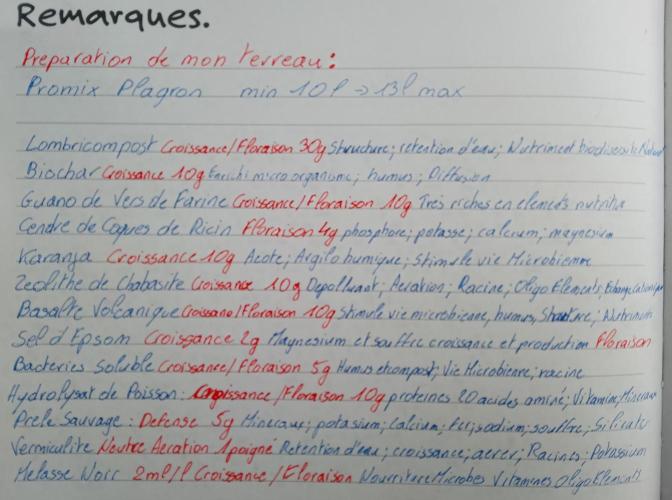 Remarques.
Preparation de mon terreau :
Promix Plagron min 10l → 13l max
Lombricompost Croissance/Floraison 30g Structure; rétention d'eau; Nutriment biodiversité
Biochar Croissance 10g Enrichi micro organisme; humus; Diffusion
Guano de Vers de Farine Croissance/Floraison 10g Très riches en elements nutritifs
Cendre de Coques de Ricin Floraison 4g phosphore; potasse; calcium; magnesium
Karanja Croissance 10g Azote; Argilo humique; Stimule vie Microbienne
Zeolithe de Chabasite Croissance 10g Depolluant; Aeration; Racine; Oligo Elements; Echange
Basalte Volcanique Croissance/Floraison 10g Stimule vie microbienne, humus, Structure; Nutriment
Sel d'Epsom Croissance 2g Magnesium et souffre croissance et production Floraison
Bacteries Soluble Croissance/Floraison 5g Humus et compost; Vie Microbienne; racine
Hydrolysat de Poisson : Croissance/Floraison 10g proteines 20 acides aminé; Vitamine; Mineraux
Prele Sauvage : Defense 5g Mineraux; potasium; calcium; fer; sodium; souffre; Silicate
Vermiculite Neutre Aeration 1 poigné Retention d'eau; croissance; aerer; Racines; Potassium
Melasse Worr 2ml/l Croissance/Floraison Nourriture Microbes Vitamines Oligo Elements